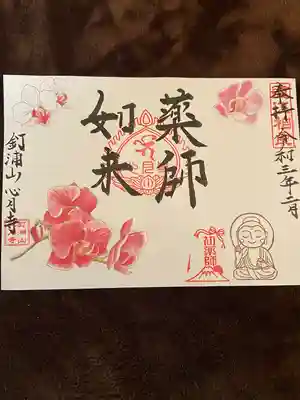 奉拝
令和三年二月
薬師
如来
釘浦山心月寺
初薬師